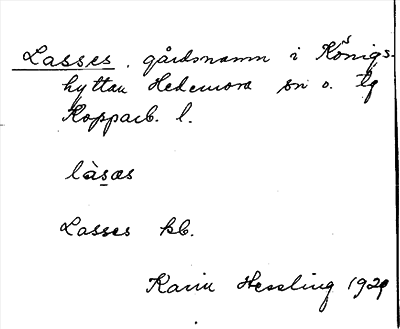 Lasses. gårdsnamn i Königs-
hyttan Hedemora sn o. tg
Kopparb. l.
làsas
Lasses kb.
Karin Hessling 1929